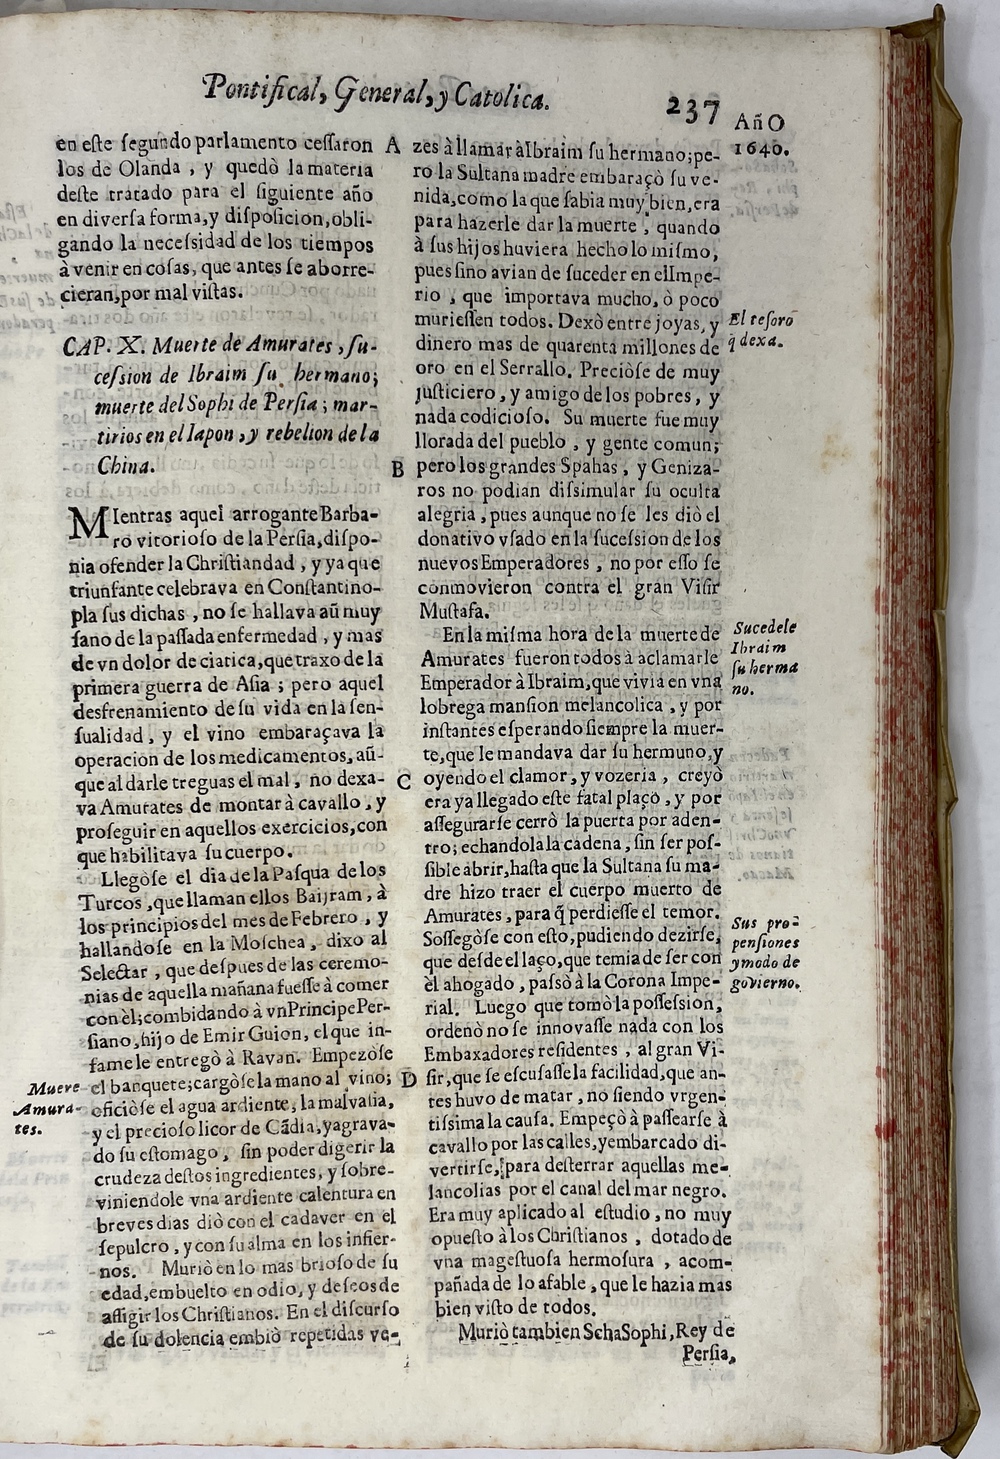 Pontifical, General, y Catolica.
237
AñO
1640.
en este segundo parlamento cessaron
los de Olanda , y quedò la materia
deste tratado para el siguiente año
en diversa forma, y disposicion, obli-
gando la necessidad de los tiempos
à venir en cosas, que antes se aborre-
cieran, por mal vistas.
CAP. X. Muerte de Amurates , su-
cession de Ibraim su hermano;
muerte del Sophi de Persia ; mar-
tirios en el Iapon , y rebelion de la
China.
MIentras aquel arrogante Barba-
ro vitorioso de la Persia, dispo-
nia ofender la Christiandad , y ya que
triunfante celebrava en Constantino-
pla sus dichas , no se hallava aũ muy
sano de la passada enfermedad , y mas
de vn dolor de ciatica, que traxo de la
primera guerra de Asia ; pero aquel
desfrenamiento de su vida en la sen-
sualidad , y el vino embaraçava la
operacion de los medicamentos, aũ-
que al darle treguas el mal , no dexa-
va Amurates de montar à cavallo , y
proseguir en aquellos exercicios, con
que habilitava su cuerpo.
Llegòse el dia de la Pasqua de los
Turcos , que llaman ellos Baijram , à
los principios del mes de Febrero , y
hallandose en la Moschea , dixo al
Selectar , que despues de las ceremo-
nias de aquella mañana fuesse à comer
con èl; combidando à vn Principe Per-
siano, hijo de Emir Guion, el que in-
fame le entregò à Ravan. Empezòse
el banquete; cargòse la mano al vino;
oficiòse el agua ardiente, la malvasia,
y el precioso licor de Cãdia, y agrava-
do su estomago , sin poder digerir la
crudeza destos ingredientes, y sobre-
viniendole vna ardiente calentura en
breves dias diò con el cadaver en el
sepulcro , y con su alma en los infier-
nos. Muriò en lo mas brioso de su
edad, embuelto en odio, y deseos de
affligir los Christianos. En el discurso
de su dolencia embiò repetidas ve-
Muere
Amura-
tes.
A
B
C
D
zes à llamar à Ibraim su hermano; pe-
ro la Sultana madre embaraçò su ve-
nida, como la que sabia muy bien, era
para hazerle dar la muerte , quando
à sus hijos huviera hecho lo mismo,
pues sino avian de suceder en el Impe-
rio , que importava mucho, ò poco
muriessen todos. Dexò entre joyas, y
dinero mas de quarenta millones de
oro en el Serrallo. Preciòse de muy
justiciero , y amigo de los pobres , y
nada codicioso. Su muerte fue muy
llorada del pueblo , y gente comun;
pero los grandes Spahas , y Geniza-
ros no podian dissimular su oculta
alegria , pues aunque no se les diò el
donativo vsado en la sucession de los
nuevos Emperadores , no por esso se
conmovieron contra el gran Visir
Mustafa.
En la misma hora de la muerte de
Amurates fueron todos à aclamarle
Emperador à Ibraim, que vivia en vna
lobrega mansion melancolica , y por
instantes esperando siempre la muer-
te, que le mandava dar su hermuno, y
oyendo el clamor , y vozeria , creyò
era ya llegado este fatal plaço , y por
assegurarse cerrò la puerta por aden-
tro; echandola la cadena, sin ser pos-
sible abrir, hasta que la Sultana su ma-
dre hizo traer el cuerpo muerto de
Amurates , para q̃ perdiesse el temor.
Sossegòse con esto, pudiendo dezirse,
que desde el laço, que temia de ser con
èl ahogado , passò à la Corona Impe-
rial. Luego que tomò la possession,
ordenò no se innovasse nada con los
Embaxadores residentes , al gran Vi-
sir, que se escusasse la facilidad, que an-
tes huvo de matar , no siendo vrgen-
tissima la causa. Empeçò à passearse à
cavallo por las calles, y embarcado di-
vertirse, para desterrar aquellas me-
lancolias por el canal del mar negro.
Era muy aplicado al estudio , no muy
opuesto à los Christianos , dotado de
vna magestuosa hermosura , acom-
pañada de lo afable , que le hazia mas
bien visto de todos.
Muriò tambien Scha Sophi, Rey de
Persia,
El tesoro
q̃ dexa.
Sucedele
Ibraim
su herma
no.
Sus pro-
pensiones
y modo de
govierno.